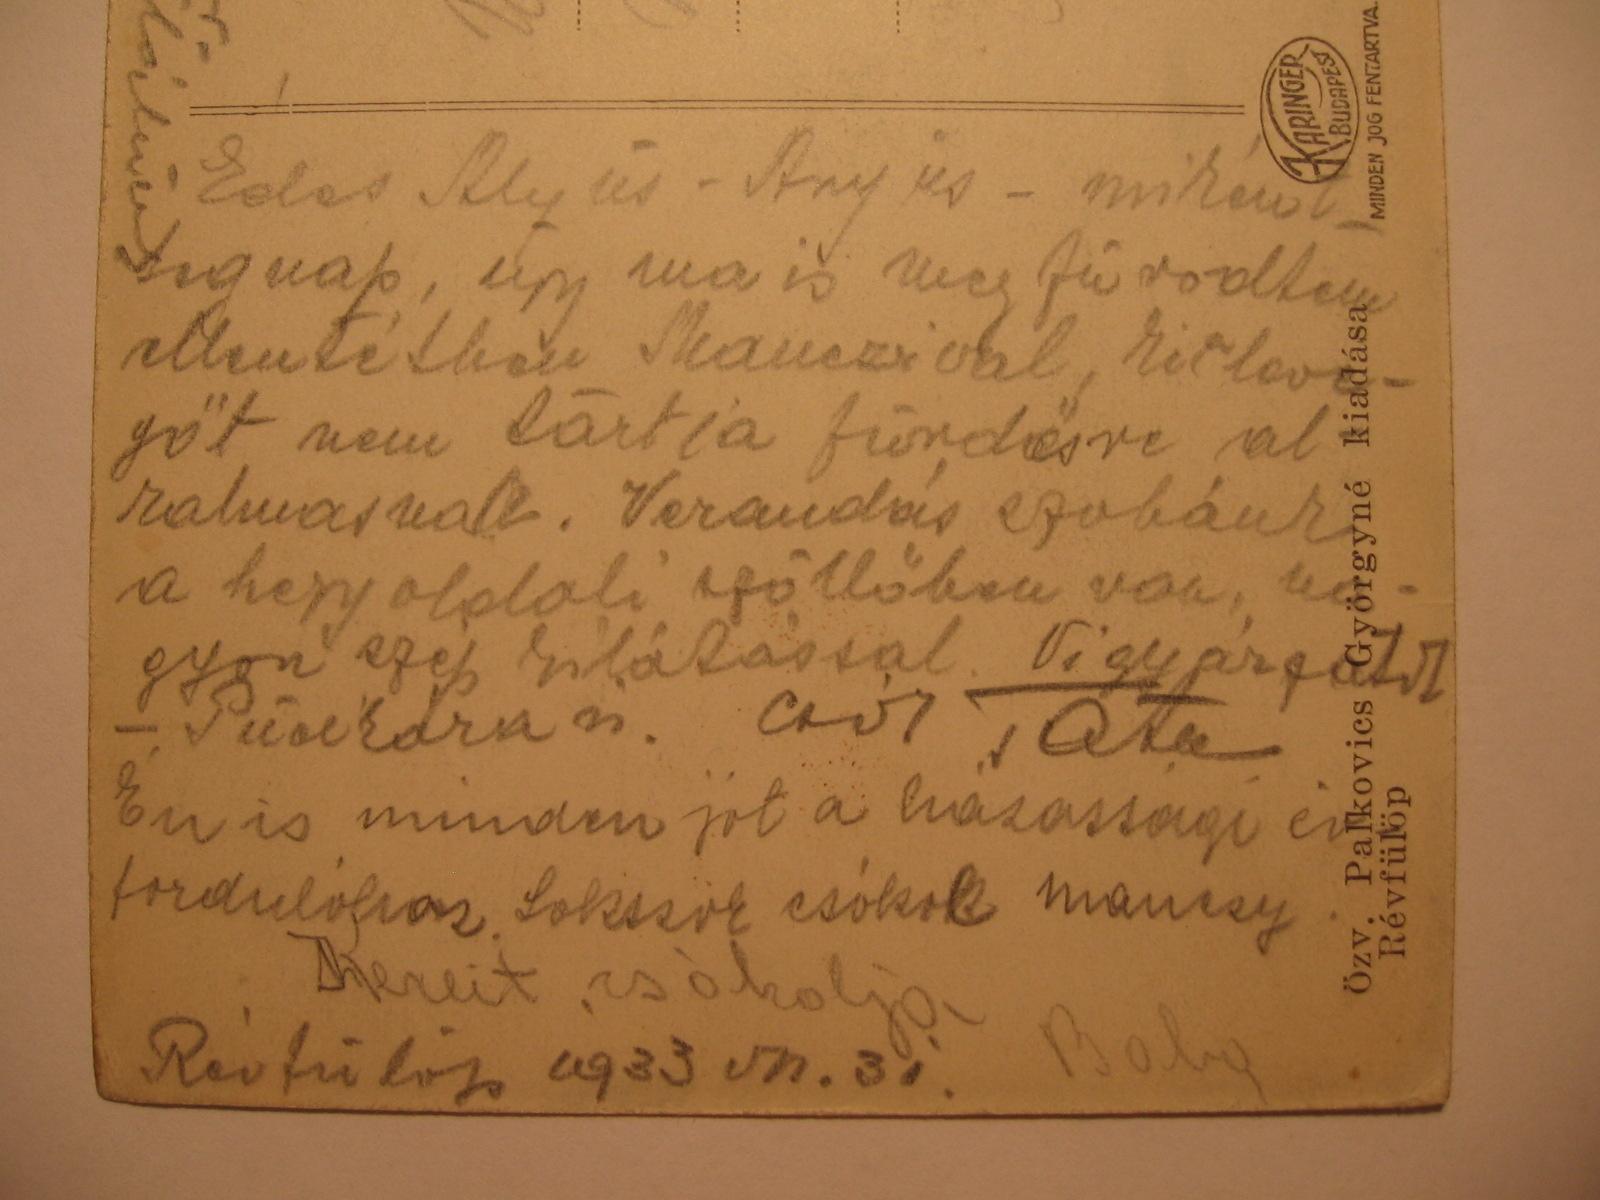 Edes Apyús - Anyús - miként
tegnap, úgy ma is megfürödtem
ellentétben Manczival, ki a leve-
gőt nem tártja fürdésre al
kalmasnak. Verandás szobánk
a hegyoldali szőllőben van, na-
gyon szép kilátással. Vigyázzatok
- Pünkárá n. Csók
Ata
Én is minden jót a házassági év
fordulóhoz. Sokszor csókol Manczy.
Kezeit csókolja
Baba
Révfülöp 1933 VII. 31.
KARINGER
BUDAPEST
MINDEN JOG FENTARTVA.
Özv. Palkovics Györgyné kiadása
Révfülöp